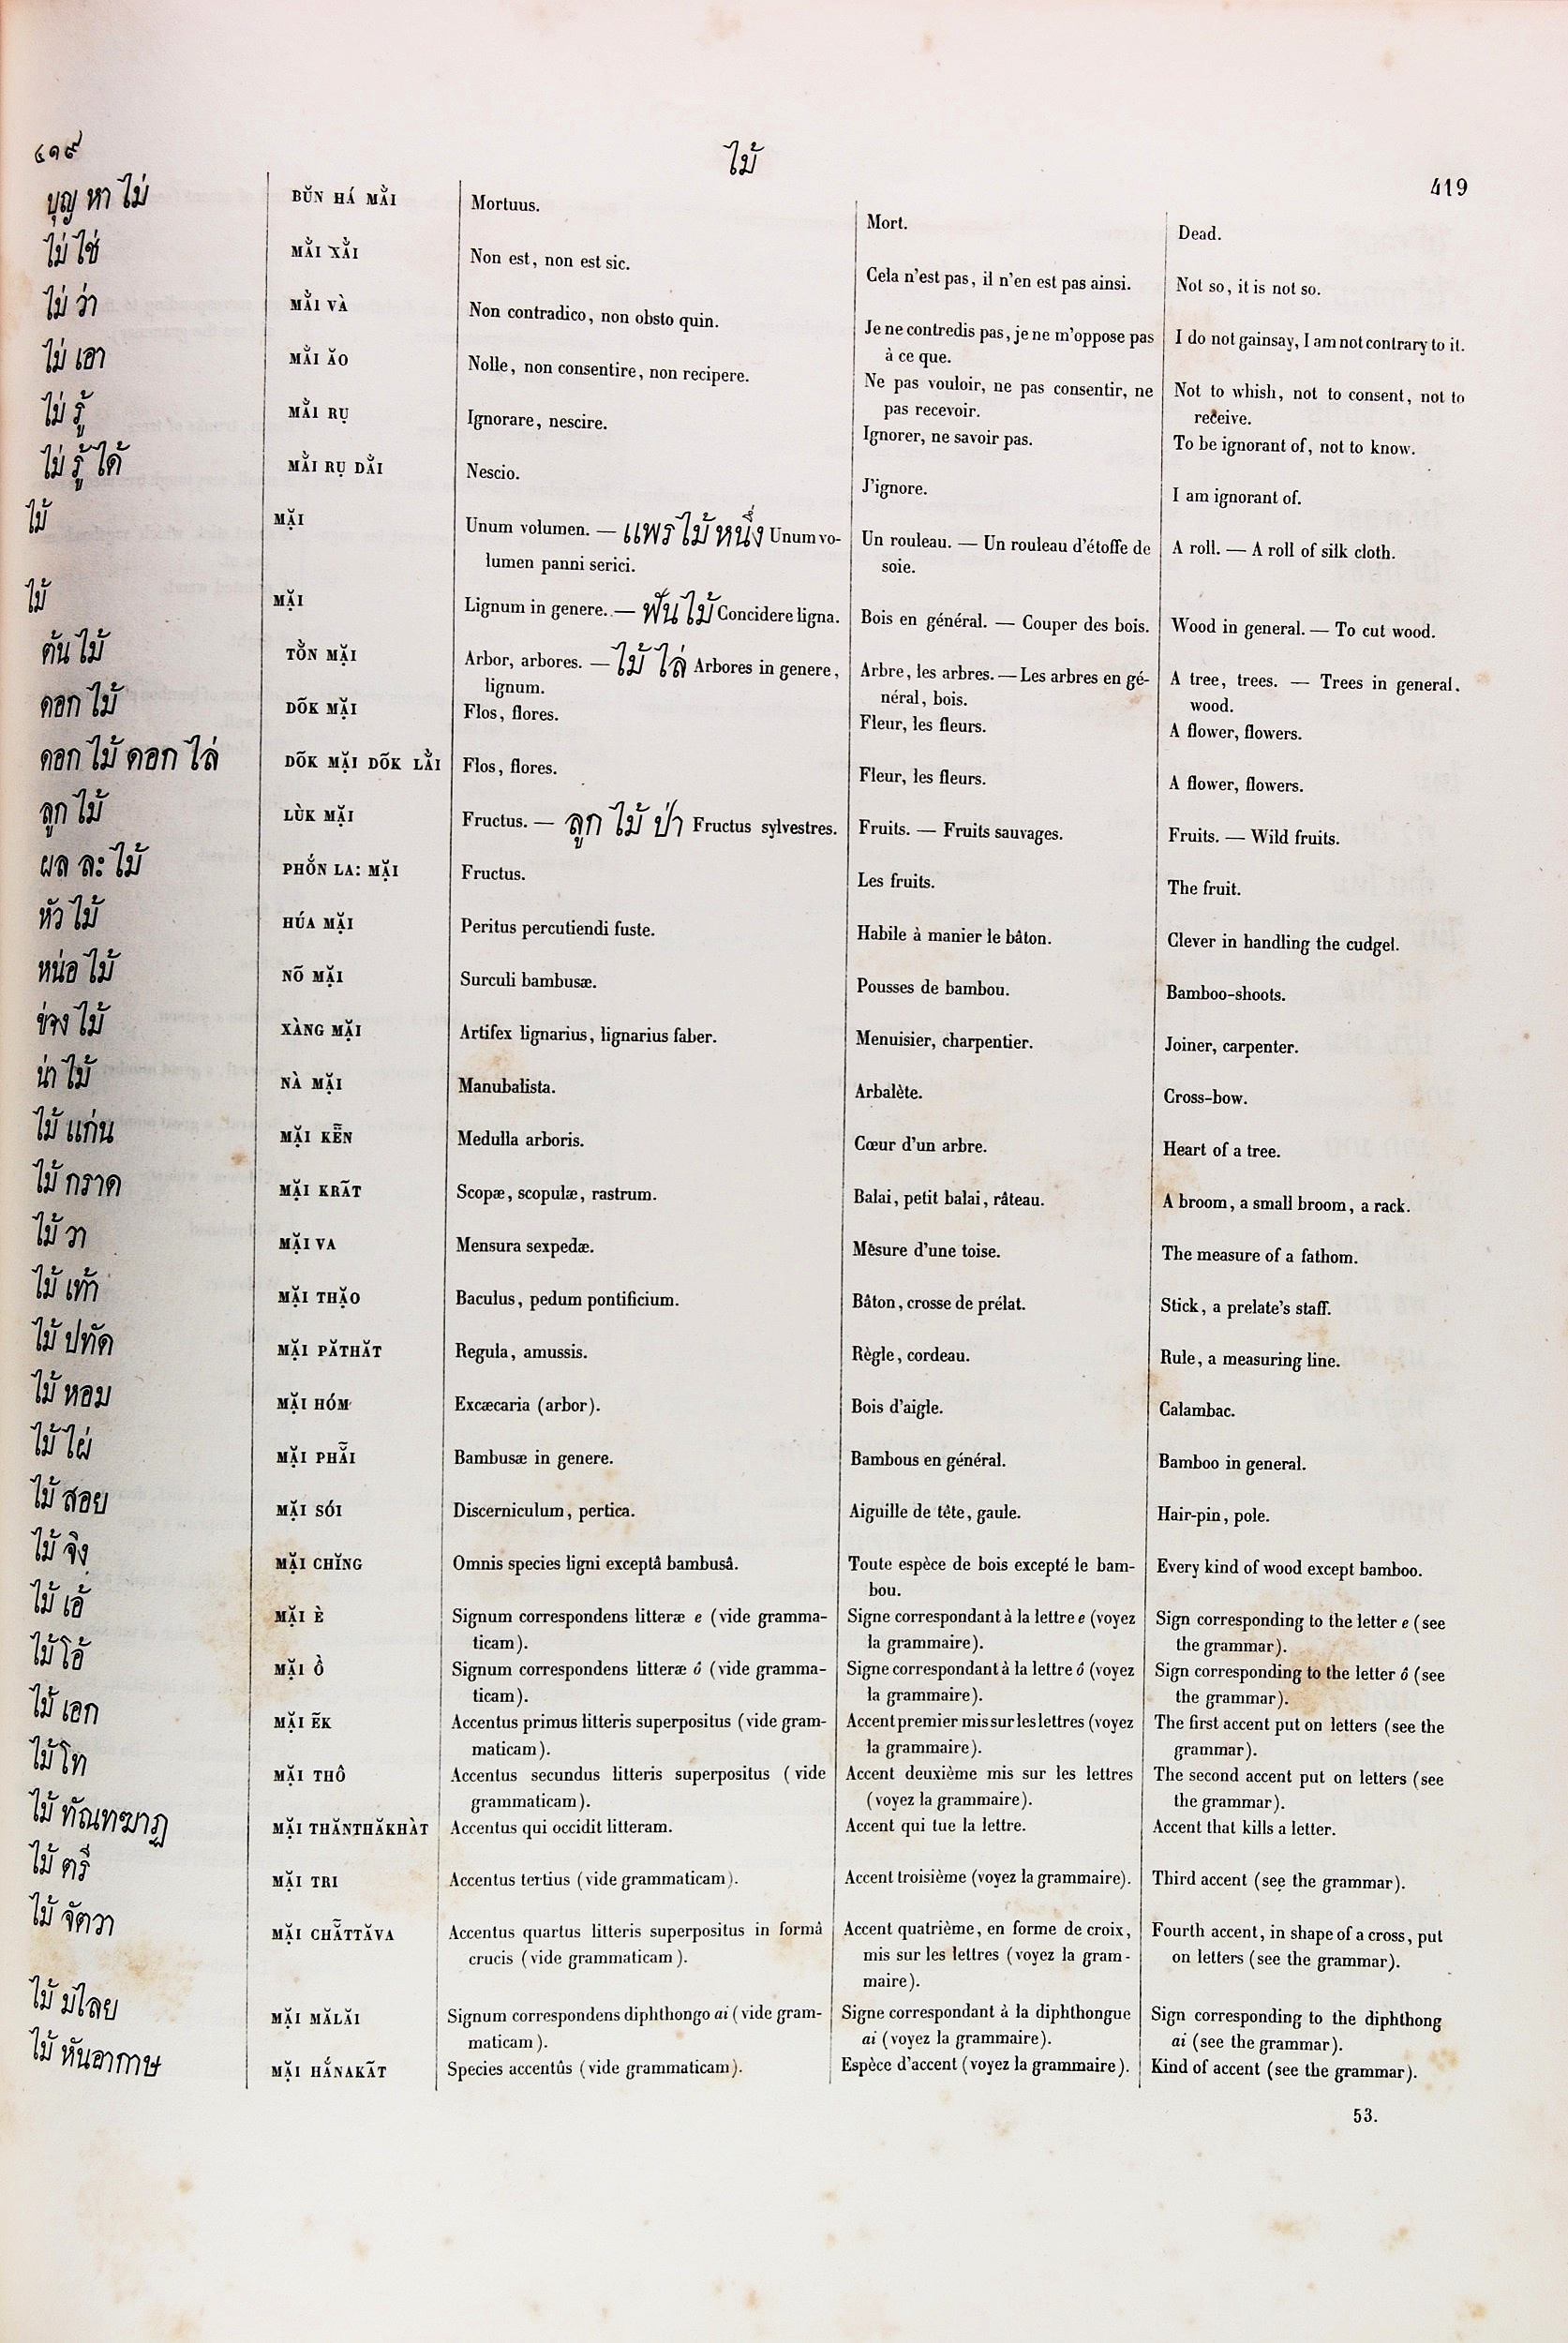 ๔๑๙
ไม้
419
บุญ หา ไม่ BŬN HÁ MẰI Mortuus. Mort. Dead.
ไม่ ใช่ MẰI XẰI Non est, non est sic. Cela n'est pas, il n'en est pas ainsi. Not so, it is not so.
ไม่ ว่า MẰI VÀ Non contradico, non obsto quin. Je ne contredis pas, je ne m'oppose pas I do not gainsay, I am not contrary to it.
à ce que.
ไม่ เอา MẰI ĂO Nolle, non consentire, non recipere. Ne pas vouloir, ne pas consentir, ne Not to whish, not to consent, not to
pas recevoir. receive.
ไม่ รู้ MẰI RỤ Ignorare, nescire. Ignorer, ne savoir pas. To be ignorant of, not to know.
ไม่ รู้ ได้ MẰI RỤ DẰI Nescio. J'ignore. I am ignorant of.
ไม้ MẶI Unum volumen. — แพร ไม้ หนึ่ง Unum vo- Un rouleau. — Un rouleau d'étoffe de A roll. — A roll of silk cloth.
lumen panni serici. soie.
ไม้ MẶI Lignum in genere. — ฟัน ไม้ Concidere ligna. Bois en général. — Couper des bois. Wood in general. — To cut wood.
ต้น ไม้ TỒN MẶI Arbor, arbores. — ไม้ ไล่ Arbores in genere, Arbre, les arbres. — Les arbres en gé- A tree, trees. — Trees in general.
lignum. néral, bois. wood.
ดอก ไม้ DÕK MẶI Flos, flores. Fleur, les fleurs. A flower, flowers.
ดอก ไม้ ดอก ไล่ DÕK MẶI DÕK LẰI Flos, flores. Fleur, les fleurs. A flower, flowers.
ลูก ไม้ LÙK MẶI Fructus. — ลูก ไม้ ป่า Fructus sylvestres. Fruits. — Fruits sauvages. Fruits. — Wild fruits.
ผล ละ ไม้ PHỐN LA: MẶI Fructus. Les fruits. The fruit.
หัว ไม้ HÚA MẶI Peritus percutiendi fuste. Habile à manier le bâton. Clever in handling the cudgel.
หน่อ ไม้ NÕ MẶI Surculi bambusæ. Pousses de bambou. Bamboo-shoots.
ช่าง ไม้ XÀNG MẶI Artifex lignarius, lignarius faber. Menuisier, charpentier. Joiner, carpenter.
น่า ไม้ NÀ MẶI Manubalista. Arbalète. Cross-bow.
ไม้ แก่น MẶI KẼN Medulla arboris. Cœur d'un arbre. Heart of a tree.
ไม้ กราด MẶI KRÃT Scopæ, scopulæ, rastrum. Balai, petit balai, râteau. A broom, a small broom, a rack.
ไม้ วา MẶI VA Mensura sexpedæ. Mesure d'une toise. The measure of a fathom.
ไม้ เท้า MẶI THẶO Baculus, pedum pontificium. Bâton, crosse de prélat. Stick, a prelate's staff.
ไม้ ปทัด MẶI PĂTHĂT Regula, amussis. Règle, cordeau. Rule, a measuring line.
ไม้ หอม MẶI HÓM Excæcaria (arbor). Bois d'aigle. Calambac.
ไม้ ไผ่ MẶI PHẴI Bambusæ in genere. Bambous en général. Bamboo in general.
ไม้ สอย MẶI SÓI Discerniculum, pertica. Aiguille de tête, gaule. Hair-pin, pole.
ไม้ จิง MẶI CHĬNG Omnis species ligni exceptâ bambusâ. Toute espèce de bois excepté le bam- Every kind of wood except bamboo.
bou.
ไม้ เอ้ MẶI È Signum correspondens litteræ e (vide gramma- Signe correspondant à la lettre e (voyez Sign corresponding to the letter e (see
ticam). la grammaire). the grammar).
ไม้ โอ้ MẶI Ồ Signum correspondens litteræ ô (vide gramma- Signe correspondant à la lettre ô (voyez Sign corresponding to the letter ô (see
ticam). la grammaire). the grammar).
ไม้ เอก MẶI ẼK Accentus primus litteris superpositus (vide gram- Accent premier mis sur les lettres (voyez The first accent put on letters (see the
maticam). la grammaire). grammar).
ไม้ โท MẶI THÔ Accentus secundus litteris superpositus (vide Accent deuxième mis sur les lettres The second accent put on letters (see
grammaticam). (voyez la grammaire). the grammar).
ไม้ ทัณทฆาฏ MẶI THĂNTHĂKHÀT Accentus qui occidit litteram. Accent qui tue la lettre. Accent that kills a letter.
ไม้ ตรี MẶI TRI Accentus tertius (vide grammaticam). Accent troisième (voyez la grammaire). Third accent (see the grammar).
ไม้ จัตวา MẶI CHẴTTĂVA Accentus quartus litteris superpositus in formâ Accent quatrième, en forme de croix, Fourth accent, in shape of a cross, put
crucis (vide grammaticam). mis sur les lettres (voyez la gram- on letters (see the grammar).
maire).
ไม้ มไลย MẶI MĂLĂI Signum correspondens diphthongo ai (vide gram- Signe correspondant à la diphthongue Sign corresponding to the diphthong
maticam). ai (voyez la grammaire). ai (see the grammar).
ไม้ หันอากาษ MẶI HẮNAKÃT Species accentûs (vide grammaticam). Espèce d'accent (voyez la grammaire). Kind of accent (see the grammar).
53.